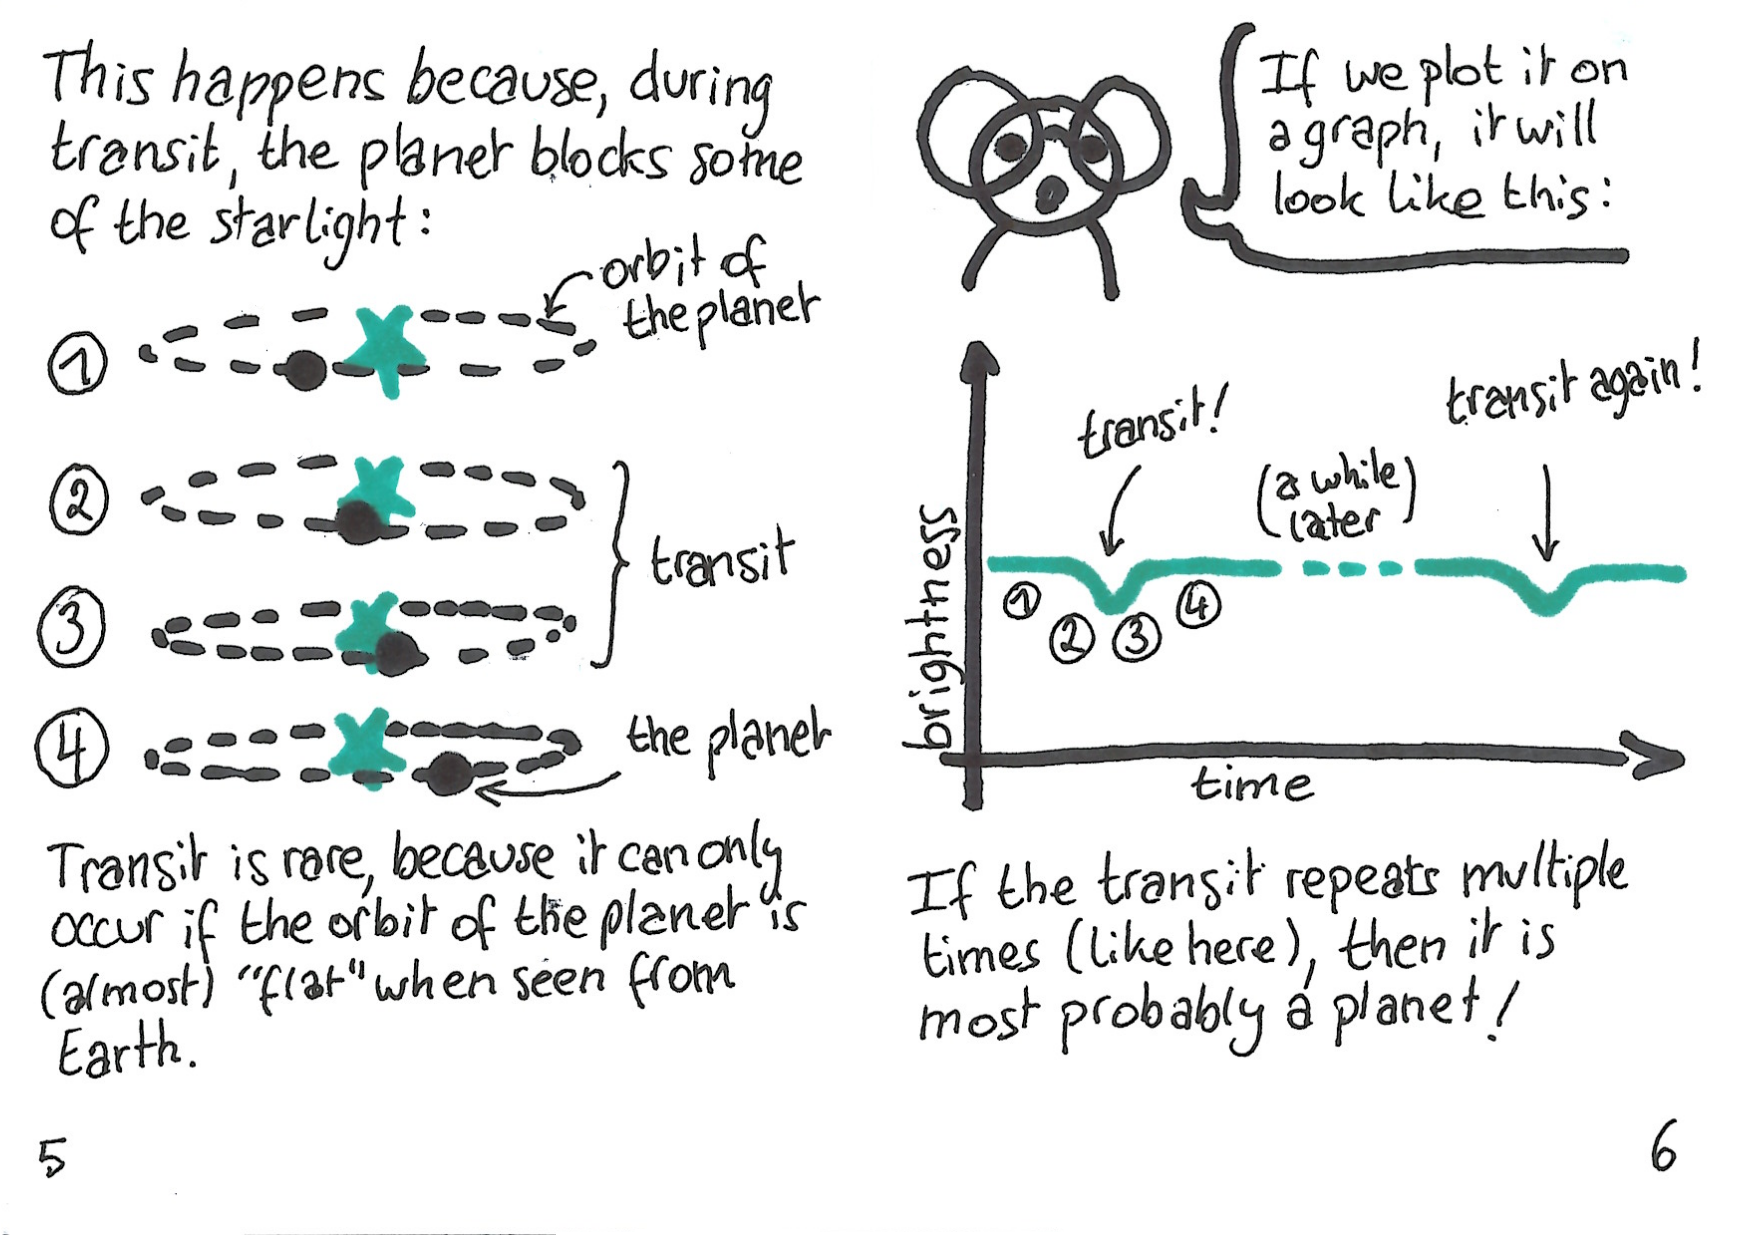 This happens because, during
transit, the planet blocks some
of the starlight:
orbit of
the planet
1
2
transit
3
4
the planet
Transit is rare, because it can only
occur if the orbit of the planet is
(almost) "flat" when seen from
Earth.
5
If we plot it on
a graph, it will
look like this:
transit!
transit again!
(a while
later)
brightness
1
2
3
4
time
If the transit repeats multiple
times (like here), then it is
most probably a planet!
6